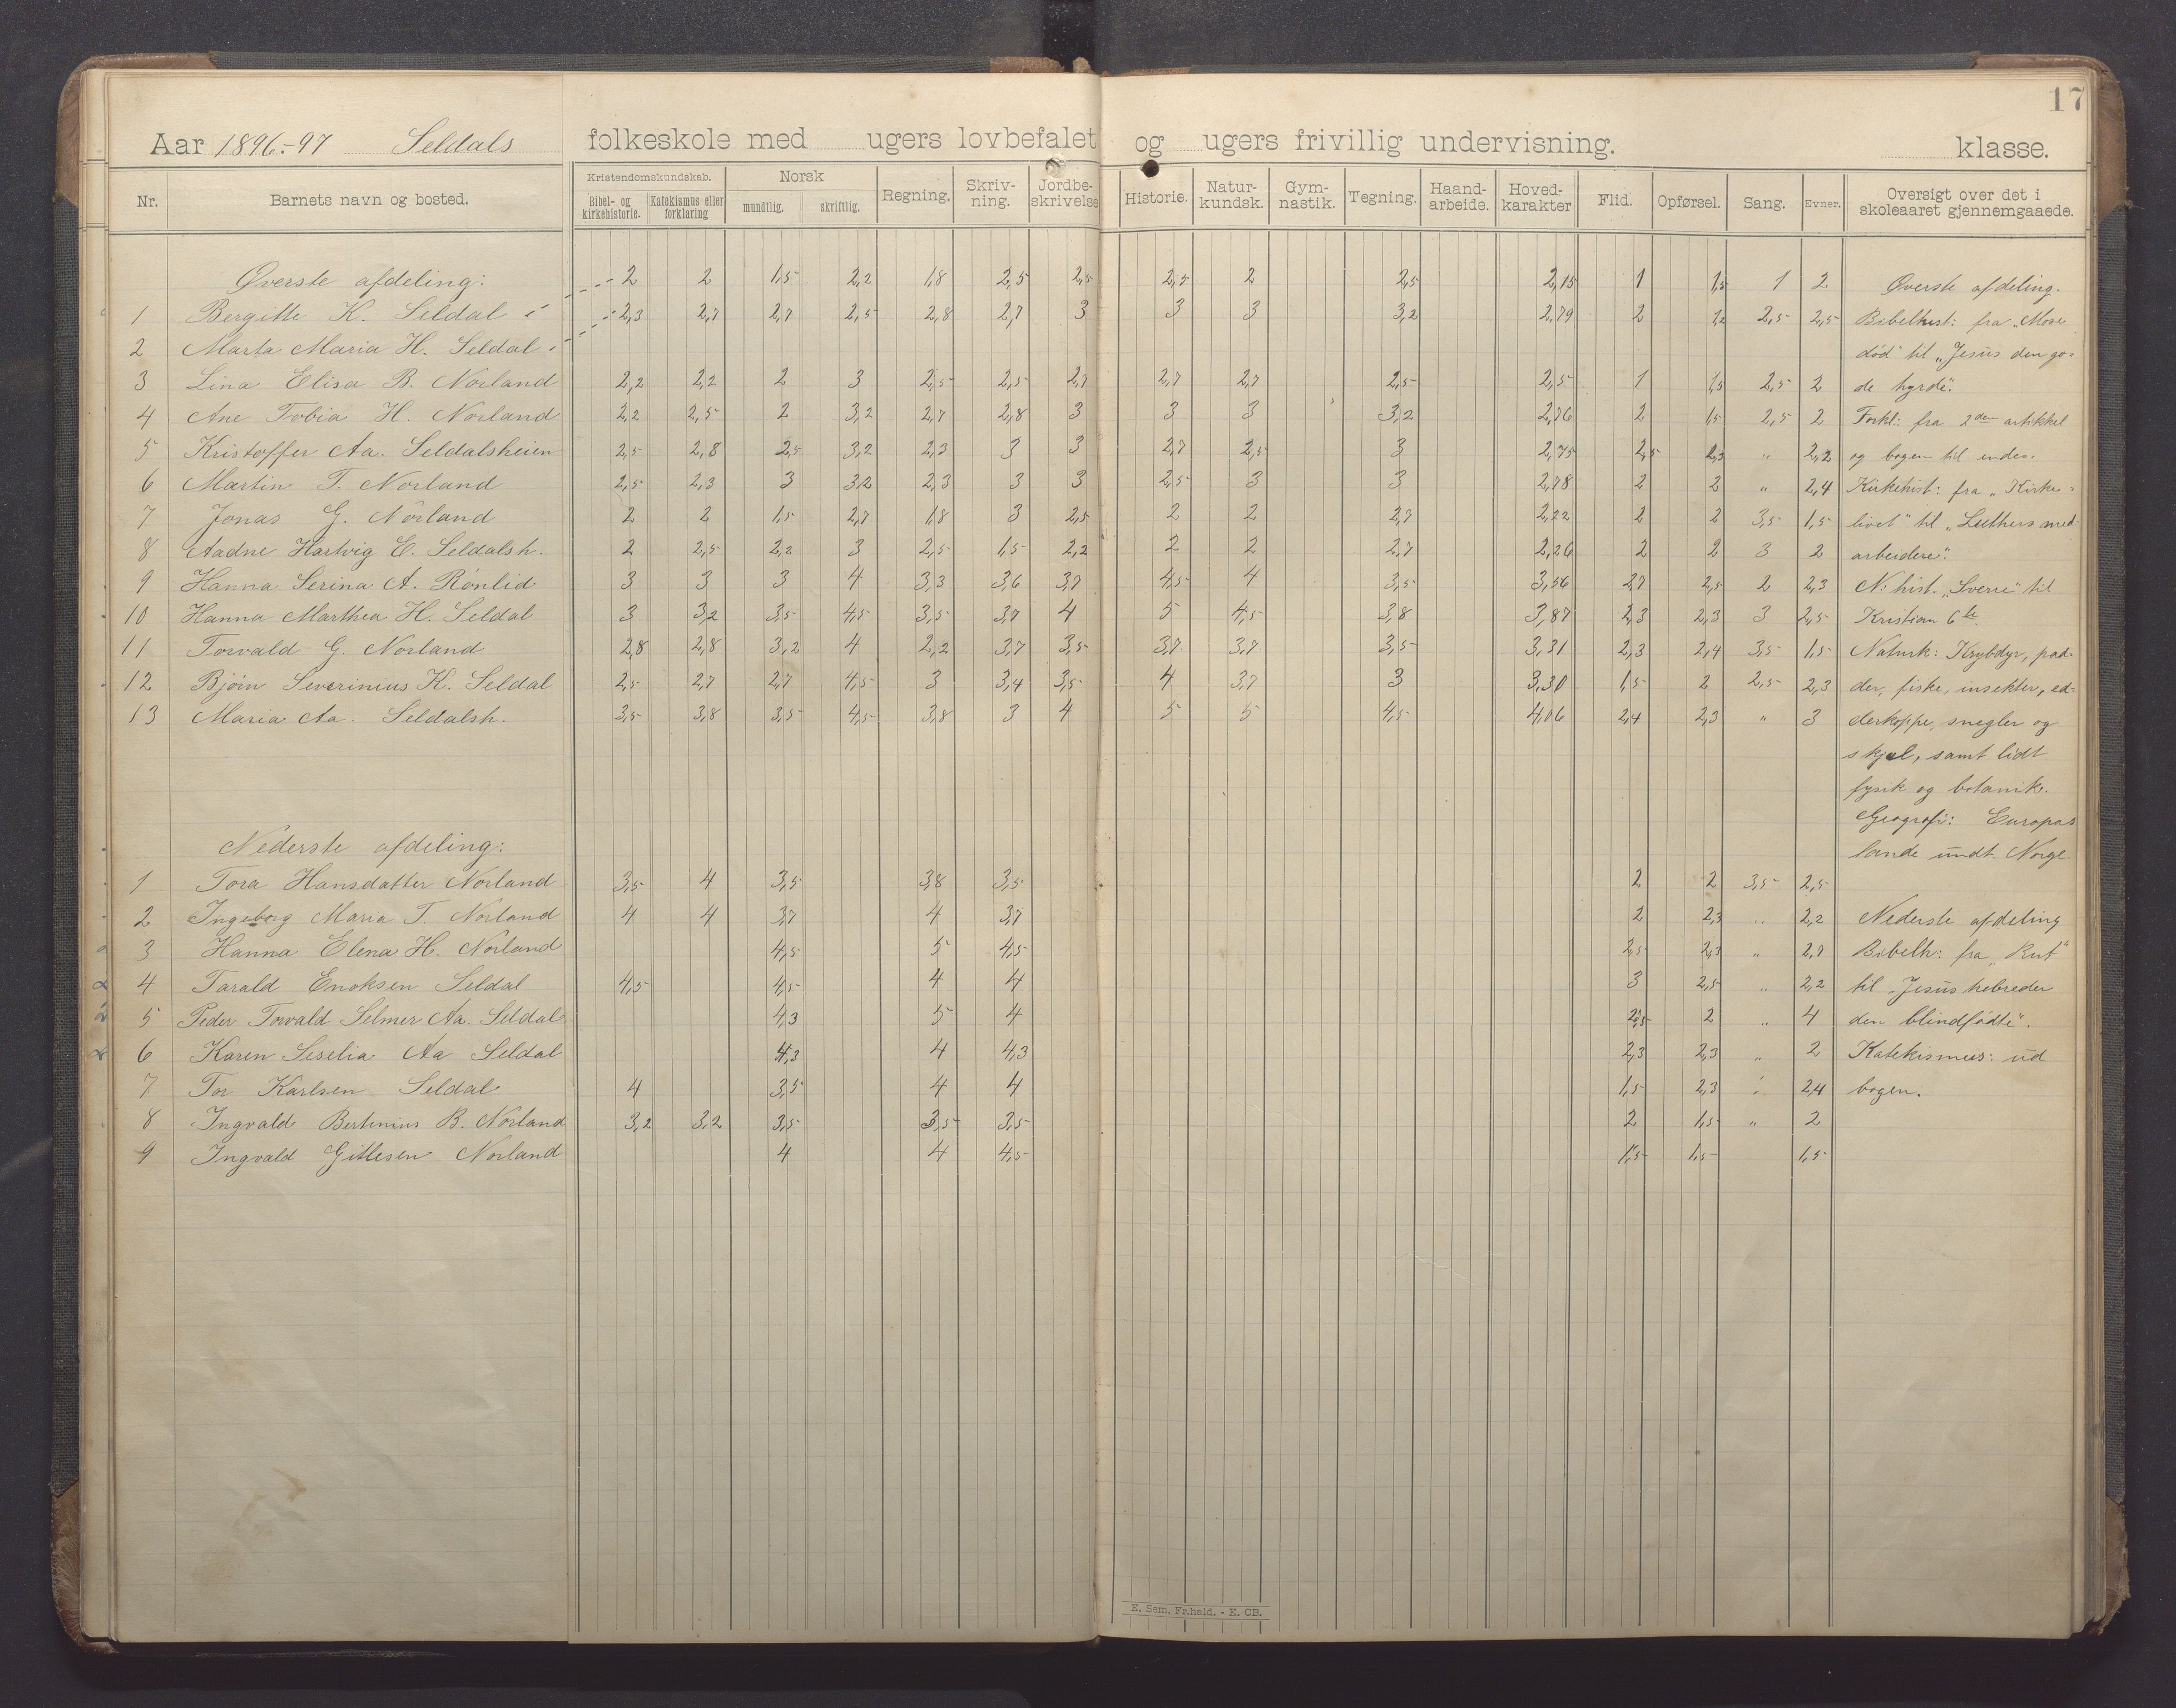 17
Aar 1896.-97 Seldals folkeskole med ugers lovbefalet og ugers frivillig undervisning. klasse.
Nr. Barnets navn og bosted. Kristendomskundskab. Bibel- og kirkehistorie. Katekismus eller forklaring Norsk mundtlig. skriftlig. Regning. Skriv-ning. Jordbe-skrivelse Historie. Natur-kundsk. Gym-nastik. Tegning. Haand-arbeide. Hoved-karakter Flid. Opførsel. Sang. Evner. Oversigt over det i skoleaaret gjennemgaaede.
Øverste afdeling: 2 2 1,5 2,2 1,8 2,5 2,5 2,5 2 2,5 2,15 1 1,5 1 2 Øverste afdeling.
1 Bergitte K. Seldal 2,3 2,7 2,7 2,5 2,8 2,7 3 3 3 3,2 2,79 2 1,2 2,5 2,5 Bibelhist: fra „Mose
2 Marta Maria H. Seldal død" til „Jesus den go-
3 Lina Elisa B. Norland 2,2 2,2 2 3 2,5 2,5 2,7 2,7 2,7 2,5 2,5 1 1,5 2,5 2 de hyrde".
4 Ane Tobia H. Norland 2,2 2,5 2 3,2 2,7 2,8 3 3 3 3,2 2,76 2 1,5 2,5 2 Forkl: fra 2den artikkel
5 Kristoffer Aa. Seldalsheien 2,5 2,8 2,5 3,2 2,3 3 3 2,7 2,5 3 2,75 2,5 2,3 „ 2,2 og bogen til ende.
6 Martin T. Norland 2,5 2,3 3 3,2 2,3 3 3 2,5 3 3 2,78 2 2 „ 2,4 Kirkehist: fra „Kirke-
7 Jonas G. Norland 2 2 1,5 2,7 1,8 3 2,5 2 2 2,7 2,22 2 2 3,5 1,5 livet" til „Luthers med
8 Aadne Hartvig E. Seldalsh. 2 2,5 2,2 3 2,5 1,5 2,2 2 2 2,7 2,26 2 2 3 2 arbeidere".
9 Hanna Serina A. Rønlid 3 3 3 4 3,3 3,6 3,7 4,5 4 3,5 3,56 2,7 2,5 2 2,3 N: hist. „Sverre" til
10 Hanna Marthea H. Seldal 3 3,2 3,5 4,5 3,5 3,7 4 5 4,5 3,8 3,87 2,3 2,3 3 2,5 Kristian 6te.
11 Torvald G. Norland 2,8 2,8 3,2 4 2,2 3,7 3,5 3,7 3,7 3,5 3,31 2,3 2,4 3,5 1,5 Naturk: Krybdyr, pad-
12 Bjørn Severinius K. Seldal 2,5 2,7 2,7 4,5 3 3,4 3,5 4 3,7 3 3,30 1,5 2 2,5 2,3 der, fiske, insekter, ed-
13 Maria Aa. Seldalsh. 3,5 3,8 3,5 4,5 3,8 3 4 5 5 4,5 4,06 2,4 2,3 „ 3 derkoppe, snegler og
skjæl, samt lidt
fysik og botanik.
Geografi: Europas
Nederste afdeling: lande undt. Norge
1 Tora Hansdatter Norland 3,5 4 3,5 3,8 3,5 2 2 3,5 2,5
2 Ingeborg Maria T. Norland 4 4 3,7 4 3,7 2 2,3 „ 2,2 Nederste afdeling
3 Hanna Elena H. Norland 4,5 5 4,5 2,5 2,3 „ 2,7 Bibelh: fra „Rut"
4 Tarald Enoksen Seldal 4,5 4,5 4 4 3 2,5 „ 2,2 til „Jesus helbreder
5 Peder Torvald Selmer Aa. Seldal 4,3 5 4 2,5 2 „ 4 den blindfødte".
6 Karen Seselia Aa Seldal 4,3 4 4,3 2,3 2,3 „ 2 Katekismus: ud
7 Tor Karlsen Seldal 4 3,5 4 4 1,5 2,3 „ 2,4 bogen.
8 Ingvald Bertinius B. Norland 3,2 3,2 3,5 3,5 3,5 2 1,5 „ 2
9 Ingvald Gitlesen Norland 4 4 4,5 1,5 1,5 1,5
E. Sem, Fr.hald. - E. CB.